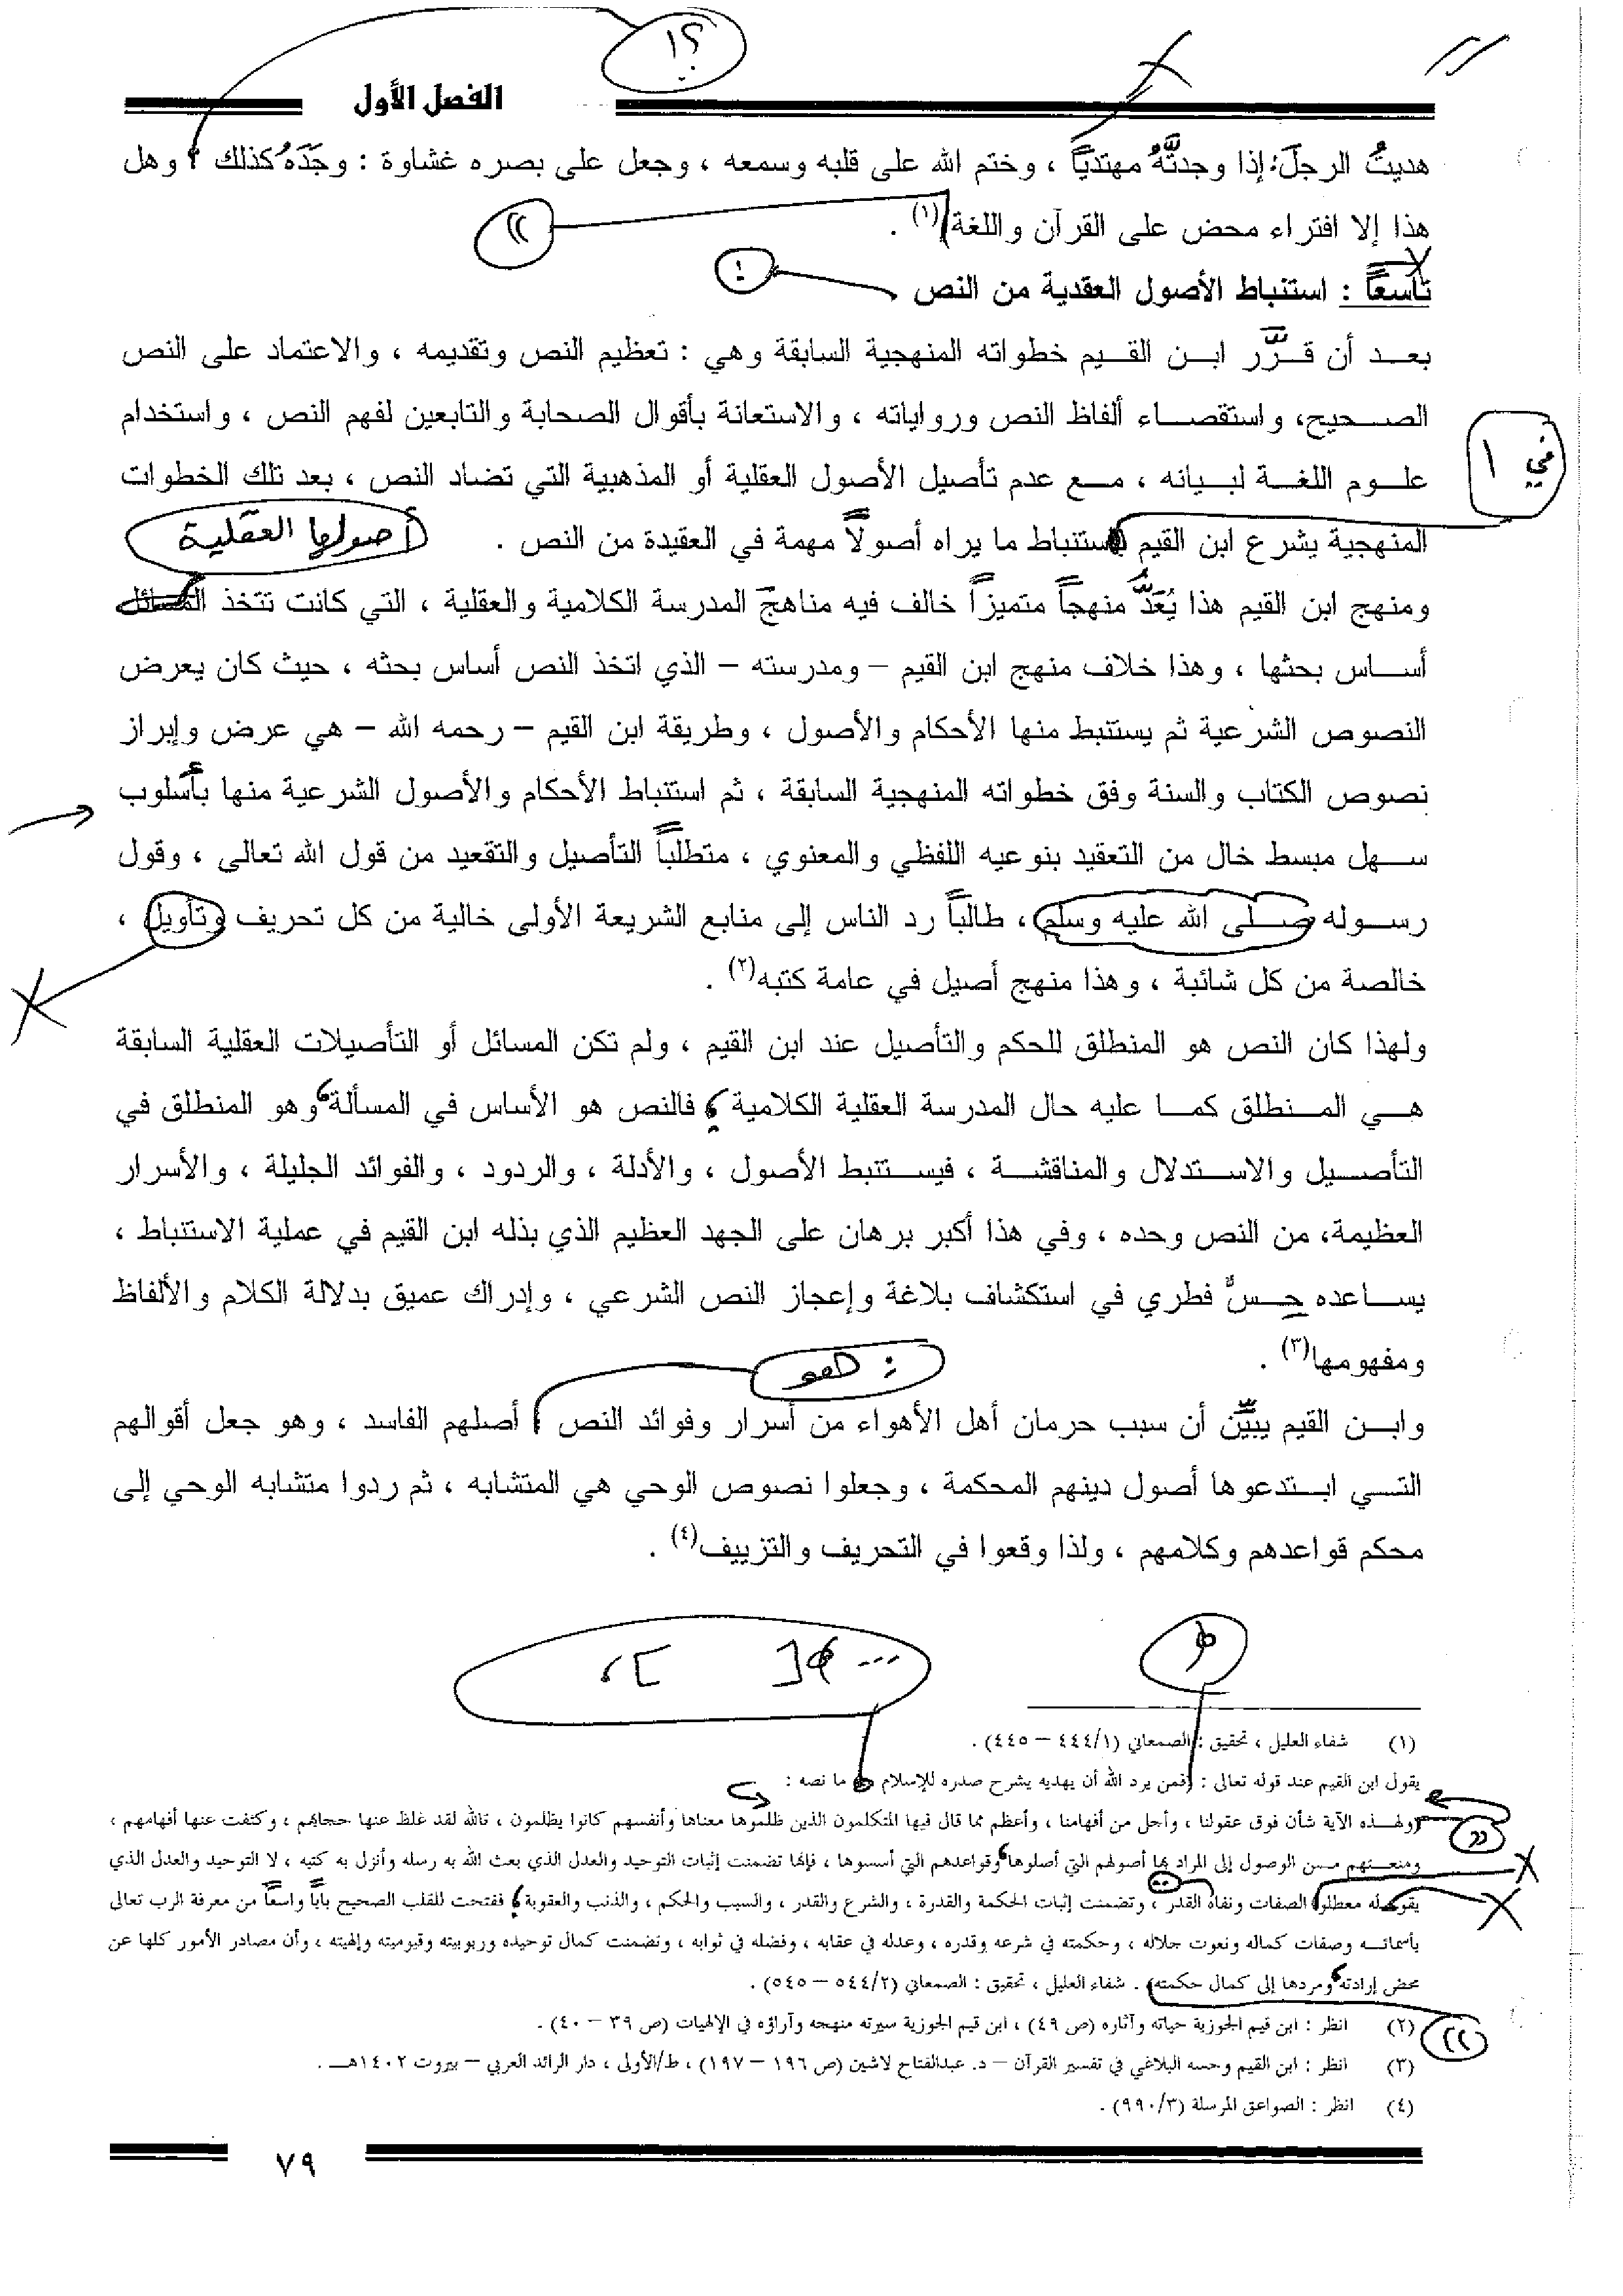 ؟!
الفصل الأول
هديتُ الرجلَ: إذا وجدتَّهُ مهتدياً ، وختم الله على قلبه وسمعه ، وجعل على بصره غشاوة : وجَدَهُ كذلك ؟ وهل
هذا إلا افتراء محض على القرآن واللغة(١) .
((
:
تاسعاً : استنباط الأصول العقدية من النص
بعد أن قرَّر ابن القيم خطواته المنهجية السابقة وهي : تعظيم النص وتقديمه ، والاعتماد على النص
الصحيح، واستقصاء ألفاظ النص ورواياته ، والاستعانة بأقوال الصحابة والتابعين لفهم النص ، واستخدام
في ا
علوم اللغة لبيانه ، مع عدم تأصيل الأصول العقلية أو المذهبية التي تضاد النص ، بعد تلك الخطوات
المنهجية يشرع ابن القيم باستنباط ما يراه أصولاً مهمة في العقيدة من النص .
أصولها العقلية
ومنهج ابن القيم هذا يُعَدُّ منهجاً متميزاً خالف فيه مناهجَ المدرسة الكلامية والعقلية ، التي كانت تتخذ المسائل
أساس بحثها ، وهذا خلاف منهج ابن القيم – ومدرسته – الذي اتخذ النص أساس بحثه ، حيث كان يعرض
النصوص الشرعية ثم يستنبط منها الأحكام والأصول ، وطريقة ابن القيم – رحمه الله – هي عرض وإبراز
نصوص الكتاب والسنة وفق خطواته المنهجية السابقة ، ثم استنباط الأحكام والأصول الشرعية منها بأسلوب
سهل مبسط خال من التعقيد بنوعيه اللفظي والمعنوي ، متطلباً التأصيل والتقعيد من قول الله تعالى ، وقول
رسوله صلى الله عليه وسلم ، طالباً رد الناس إلى منابع الشريعة الأولى خالية من كل تحريف وتأويل ،
خالصة من كل شائبة ، وهذا منهج أصيل في عامة كتبه(٢) .
ولهذا كان النص هو المنطلق للحكم والتأصيل عند ابن القيم ، ولم تكن المسائل أو التأصيلات العقلية السابقة
هي المنطلق كما عليه حال المدرسة العقلية الكلامية ؛ فالنص هو الأساس في المسألة، وهو المنطلق في
التأصيل والاستدلال والمناقشة ، فيستنبط الأصول ، والأدلة ، والردود ، والفوائد الجليلة ، والأسرار
العظيمة، من النص وحده ، وفي هذا أكبر برهان على الجهد العظيم الذي بذله ابن القيم في عملية الاستنباط ،
يساعده حِسٌّ فطري في استكشاف بلاغة وإعجاز النص الشرعي ، وإدراك عميق بدلالة الكلام والألفاظ
ومفهومها(٣) .
: هو
وابن القيم يبيِّن أن سبب حرمان أهل الأهواء من أسرار وفوائد النص أصلهم الفاسد ، وهو جعل أقوالهم
التي ابتدعوها أصول دينهم المحكمة ، وجعلوا نصوص الوحي هي المتشابه ، ثم ردوا متشابه الوحي إلى
محكم قواعدهم وكلامهم ، ولذا وقعوا في التحريف والتزييف(٤) .
... ﴾ [ ] ،
﴿
(١) شفاء العليل ، تحقيق : الصمعاني (٤٤٤/١ – ٤٤٥) .
يقول ابن القيم عند قوله تعالى : فمن يرد الله أن يهديه يشرح صدره للإسلام ما نصه :
ولهذه الآية شأن فوق عقولنا ، وأجل من أفهامنا ، وأعظم مما قال فيها المتكلمون الذين ظلموها معناها وأنفسهم كانوا يظلمون ، تالله لقد غلظ عنها حجابهم ، وكثفت عنها أفهامهم ،
))
ومنعتهم من الوصول إلى المراد بها أصولهم التي أصلوها، وقواعدهم التي أسسوها ، فإنها تضمنت إثبات التوحيد والعدل الذي بعث الله به رسله وأنزل به كتبه ، لا التوحيد والعدل الذي
يقوله معطلوا الصفات ونفاة القدر ، وتضمنت إثبات الحكمة والقدرة ، والشرع والقدر ، والسبب والحكم ، والذنب والعقوبة ؛ ففتحت للقلب الصحيح باباً واسعاً من معرفة الرب تعالى
بأسمائه وصفات كماله ونعوت جلاله ، وحكمته في شرعه وقدره ، وعدله في عقابه ، وفضله في ثوابه ، وتضمنت كمال توحيده وربوبيته وقيوميته وإلهيته ، وأن مصادر الأمور كلها عن
محض إرادته، ومردها إلى كمال حكمته . شفاء العليل ، تحقيق : الصمعاني (٥٤٤/٢ – ٥٤٥) .
((
(٢) انظر : ابن قيم الجوزية حياته وآثاره (ص ٤٩) ، ابن قيم الجوزية سيرته منهجه وآراؤه في الإلهيات (ص ٣٩ – ٤٠) .
(٣) انظر : ابن القيم وحسه البلاغي في تفسير القرآن – د. عبدالفتاح لاشين (ص ١٩٦ – ١٩٧) ، ط/الأولى ، دار الرائد العربي – بيروت ١٤٠٢هـ .
(٤) انظر : الصواعق المرسلة (٩٩٠/٣) .
٧٩